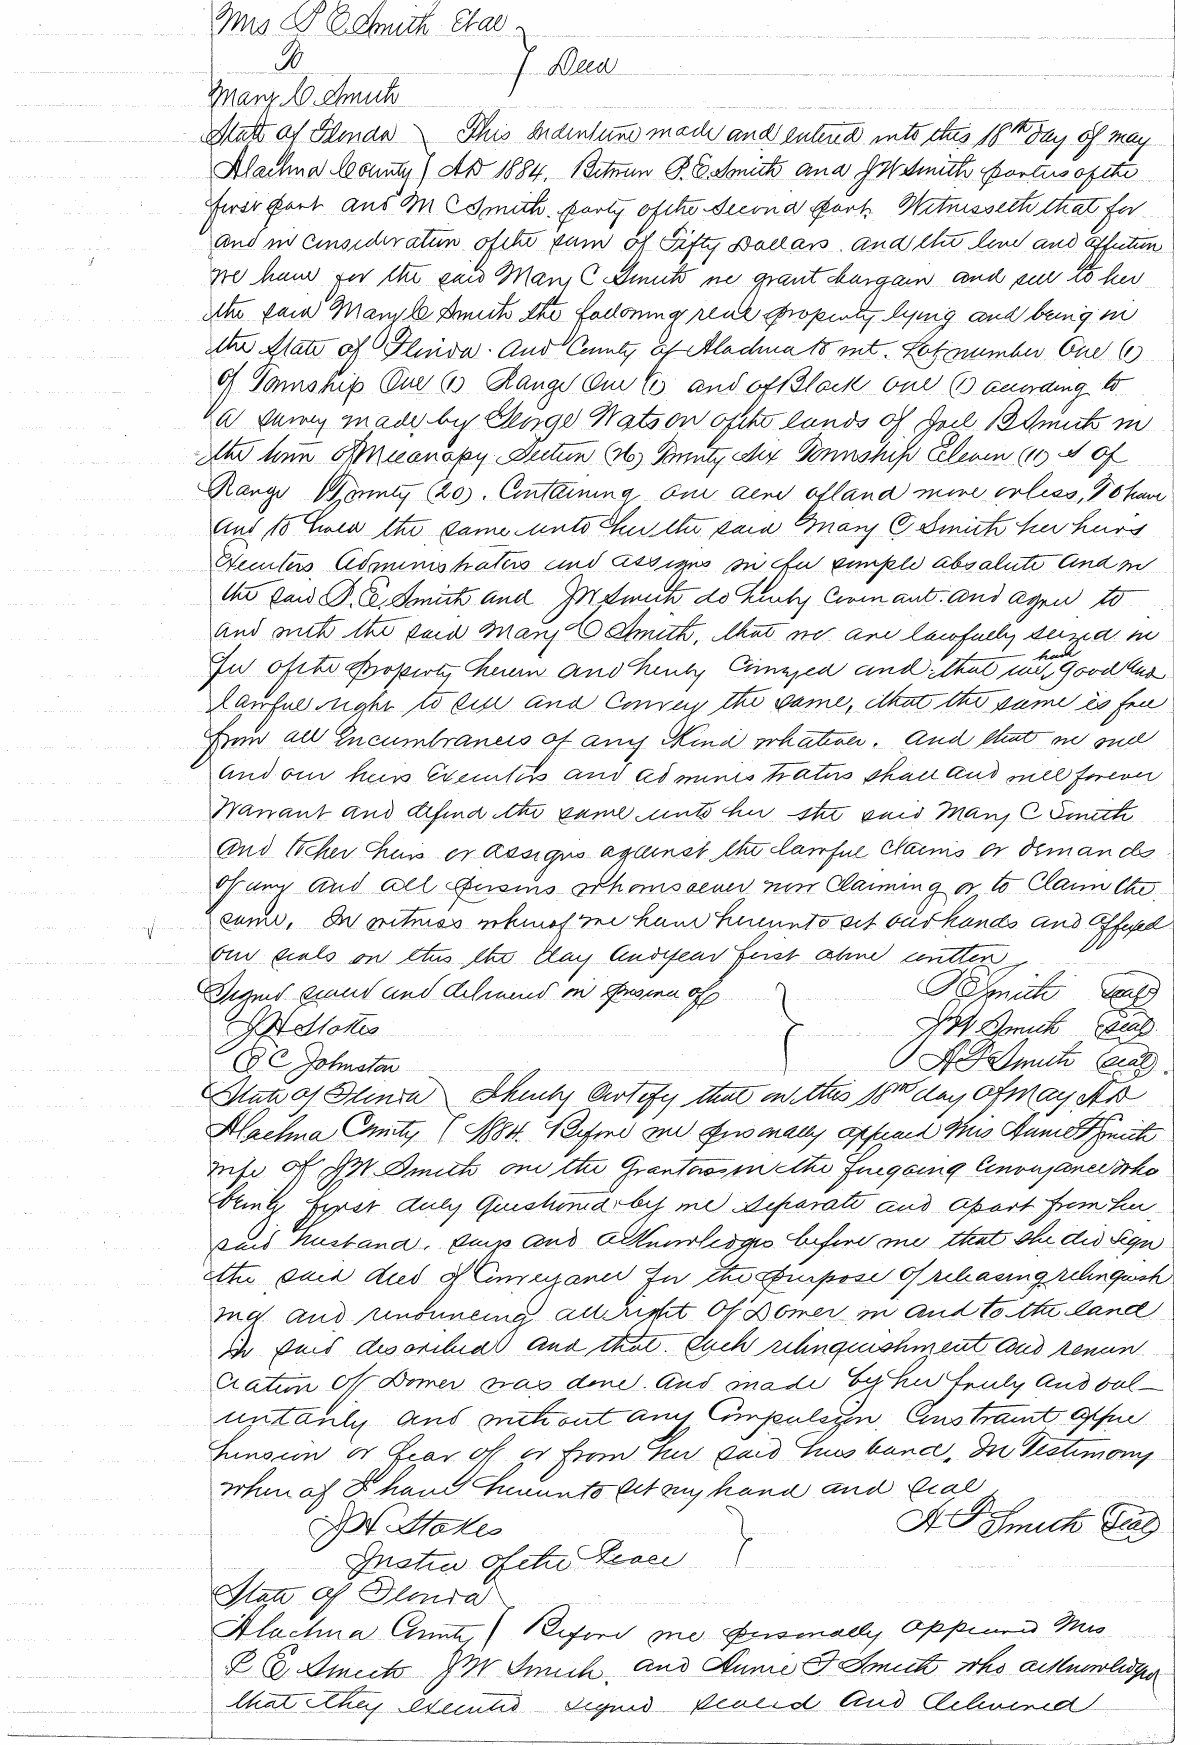 Mrs P E Smith Etal
To } Deed
Mary C Smith
State of Florida } This Indenture made and entered into this 18th day of may
Alachua County } AD 1884. Between P. E. Smith and J W Smith parties of the
first part and M C Smith party of the Second part. Witnesseth that for
and in consideration of the sum of Fifty Dollars. and the love and affection
we have for the said Mary C Smith we grant bargain and sell to her
the said Mary C Smith the following real property lying and being in
the State of Florida. And County of Alachua to wit. Lot number One (1)
of Township One (1) Range One (1) and of Block one (1) according to
a survey made by George Watson of the lands of Joel B Smith in
the town of Micanopy Section (26) Twenty Six Township Eleven (11) S of
Range Twenty (20). Containing one acre of land more or less, To have
and to hold the same unto her the said Mary C Smith her heirs
Executors Administrators and assigns in fee simple absolute and we
the said P. E. Smith and J W Smith do hereby covenant and agree to
and with the said Mary C Smith, that we are lawfully seized in
fee of the property herein and hereby conveyed and that we have good and
lawful right to sell and convey the same, that the same is free
from all Encumbrances of any Kind whatever. and that we will
and our heirs Executors and administrators shall and will forever
Warrant and defend the same unto her she said Mary C Smith
and to her heirs or assigns against the lawful claims or demands
of any and all persons whomsoever now Claiming or to Claim the
same. In witness whereof we have hereunto set our hands and affixed
our seals on this the day and year first above written
Signed sealed and delivered in presence of } P E Smith Seal
J W Stokes J W Smith Seal
C Johnston A F Smith Seal
State of Florida } I hereby Certify that on this 18th day of May AD
Alachua County } 1884. Before me personally appeared Mrs Annie F Smith
wife of J W Smith one the Grantors in the foregoing Conveyance who
being first duly questioned by me separate and apart from her
said husband. says and acknowledges before me that she did sign
the said deed of Conveyance for the purpose of releasing relinquish
ing and renouncing all right of Dower in and to the land
in said described and that such relinquishment and renun
ciation of Dower was done and made by her freely and vol-
untarily and without any Compulsion Constraint appre
hension or fear of or from her said husband. In Testimony
whereof I have hereunto set my hand and seal
J W Stokes } A F Smith Seal
Justice of the Peace
State of Florida
Alachua County } Before me personally appeared Mrs
P E Smith J W Smith and Annie F Smith who acknowledged
that they executed signed sealed and delivered